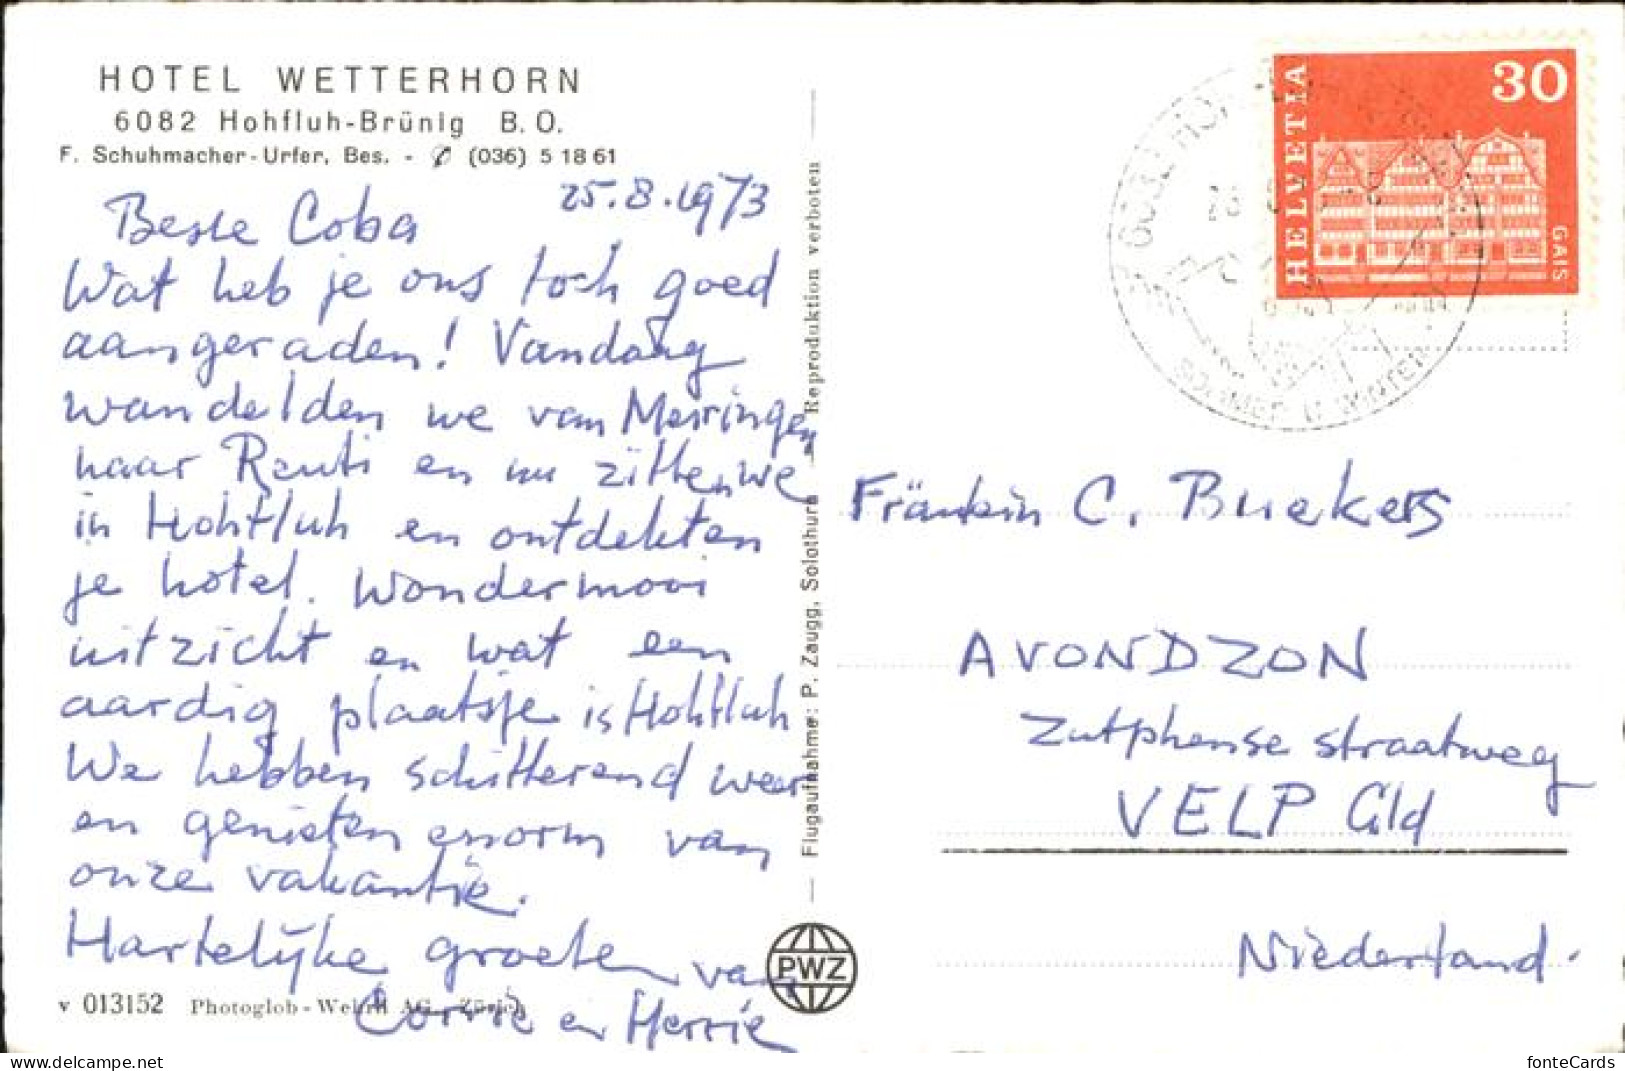 HOTEL WETTERHORN
6082 Hohfluh-Brünig B.O.
F. Schuhmacher-Urfer, Bes. - ✆ (036) 5 18 61
25.8.1973
Beste Coba
Wat heb je ons toch goed
aangeraden! Vandaag
wandelden we van Meiringen
naar Reuti en nu zitten we
in Hohfluh en ontdekten
je hotel. Wondermooi
uitzicht en wat een
aardig plaatsje is Hohfluh
We hebben schitterend weer
en genieten enorm van
onze vakantie.
Hartelijke groeten van
Corrie en Herrie
v 013152 Photoglob-Wehrli AG., Zürich
Flugaufnahme: P. Zaugg, Solothurn — Reproduktion verboten
PWZ
HELVETIA
30
GAIS
6082
SOMMER U. WINTER
Fräulein C. Buekers
AVONDZON
Zutphense straatweg
VELP Gld
Niederland.
fonteCards